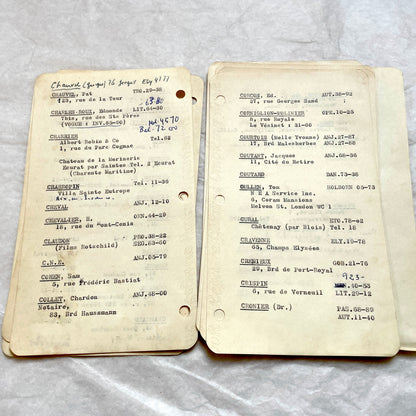 Chaurd (Georges) 76 Ely 4177
CHAUVEL, Pat TRO.29-38
123, rue de la Tour
CHARLES-ROUX, Edmonde LIT.64-30
7bis, rue des Sts Pères
(VOGUE : INV.83-90)
Bal. 12 00
CHARRIER Tel.82
Albert Robin & Co
1, rue du Parc Cognac
Chateau de la Morinerie
Ecurat par Saintes Tel. 2 Ecurat
(Charente Maritime)
CHAUDOPIN Tel. 11-36
Villa Sainte Europe
CHEVAL ANJ. 12-10
CHEVALIER, H. ORN.44-29
18, rue du Mont-Cenis
CLAUDON PRO.38-22
(Films Rotschild) SEG.63-60
C.N.E. ANJ.03-79
COHEN, Sam
5, rue Frédéric Bastiat
COLLET, Chardon ANJ.68-00
Notaire,
83, Brd Haussmann
CORCOS, Ed. AUT.38-92
27, rue Georges Sand
CORNIGLION-MOLINIER OPE.10-25
8, rue Royale
Le Vésinet : 31-00
COURTOIS (Melle Yvonne) ANJ.27-87
17, Brd Malesherbes ANJ.27-88
COUTANT, Jacques ANJ.68-36
11, Cité du Retiro
COUTARD DAN.73-36
CULLEN, Tom HOLBORN 03-73
N E A Service Inc.
8, Coram Mansions
London WC 1
CURAL ETO.78-02
Châtenay (par Blois) Tel. 18
CRAVENNE ELY.19-78
65, Champs Elysées
CREMIEUX GOB.21-76
29, Brd de Port-Royal
923-
CRESPIN 40-53
6, rue de Verneuil LIT.29-12
CRONIER (Dr.) PAS.68-89
AUT.11-40